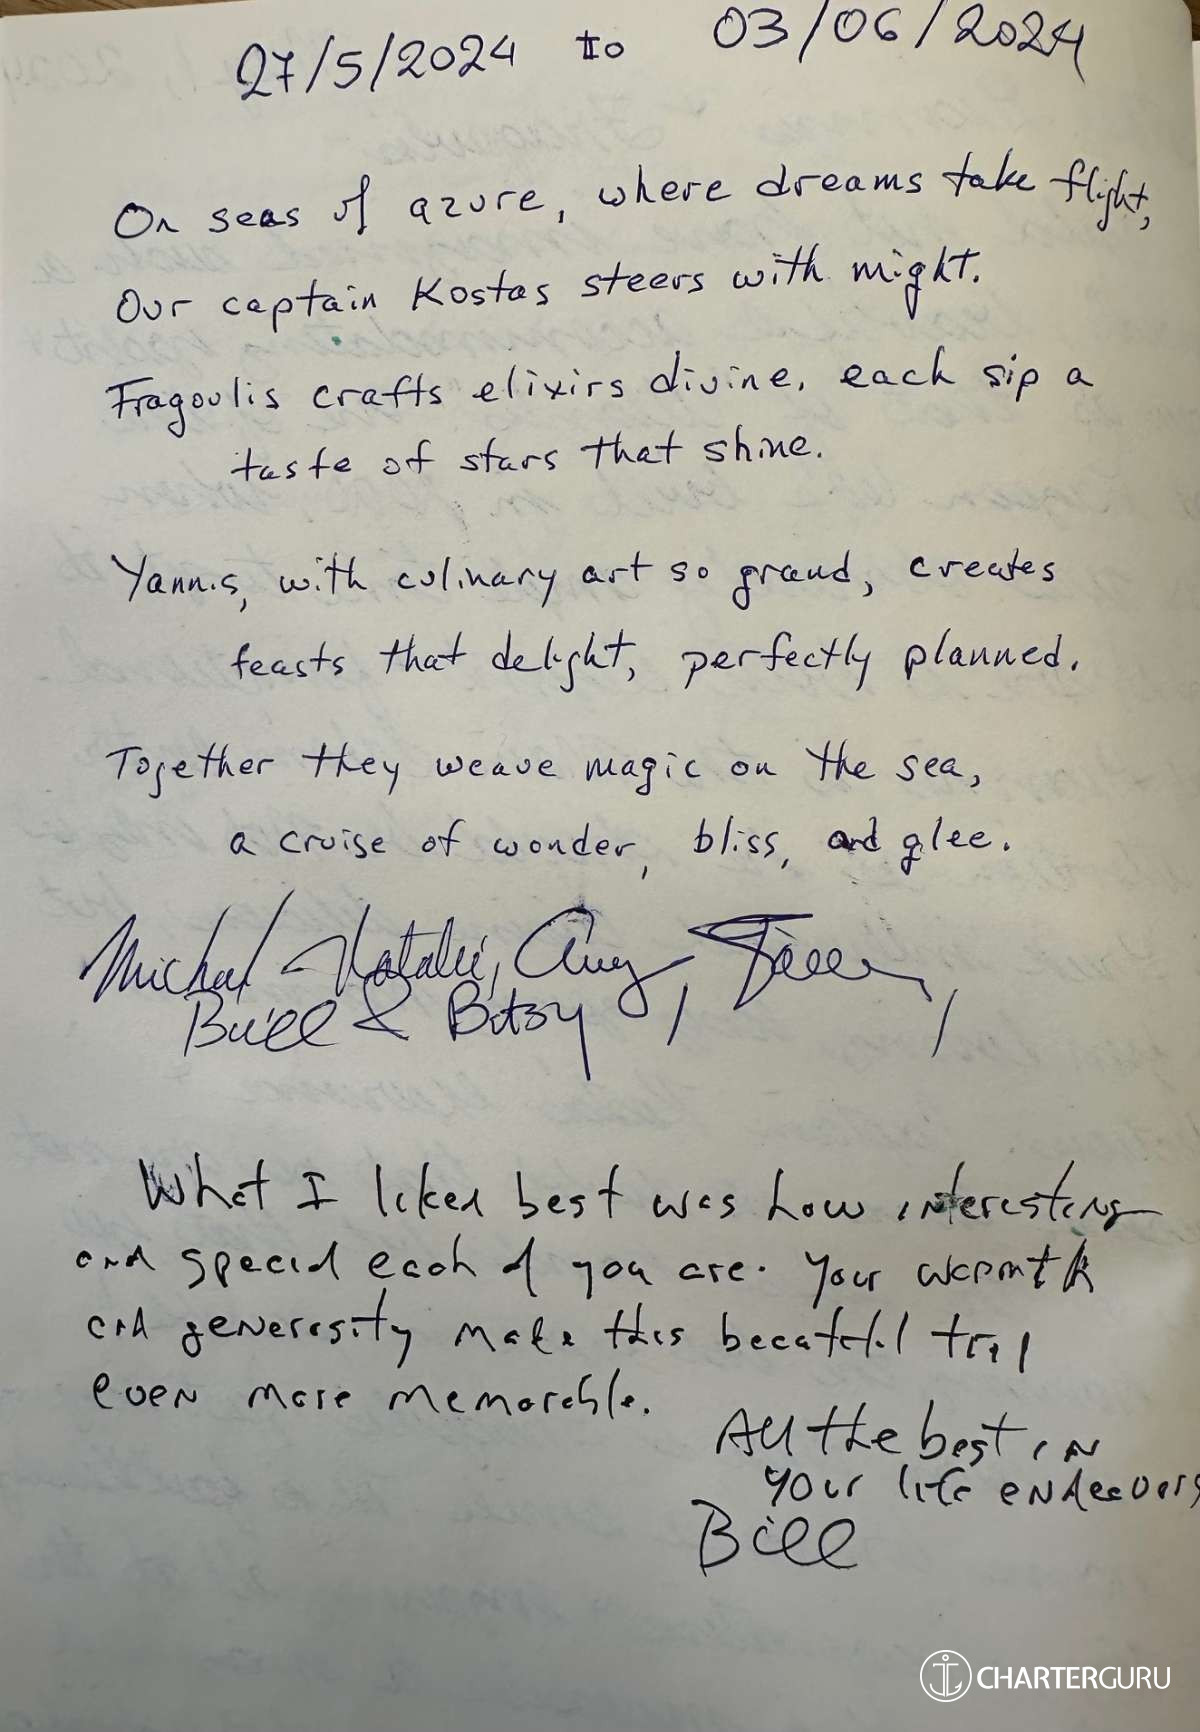 27/5/2024 to 03/06/2024
On seas of azure, where dreams take flight,
Our captain Kostas steers with might.
Fragoulis crafts elixirs divine, each sip a
taste of stars that shine.
Yannis, with culinary art so grand, creates
feasts that delight, perfectly planned.
Together they weave magic on the sea,
a cruise of wonder, bliss, and glee.
Michael Natalie, Amy,
Bill & Betsy
What I liked best was how interesting
and special each of you are. Your warmth
and generosity make this beautiful trip
even more memorable.
All the best in
your life endeavors
Bill
CHARTERGURU